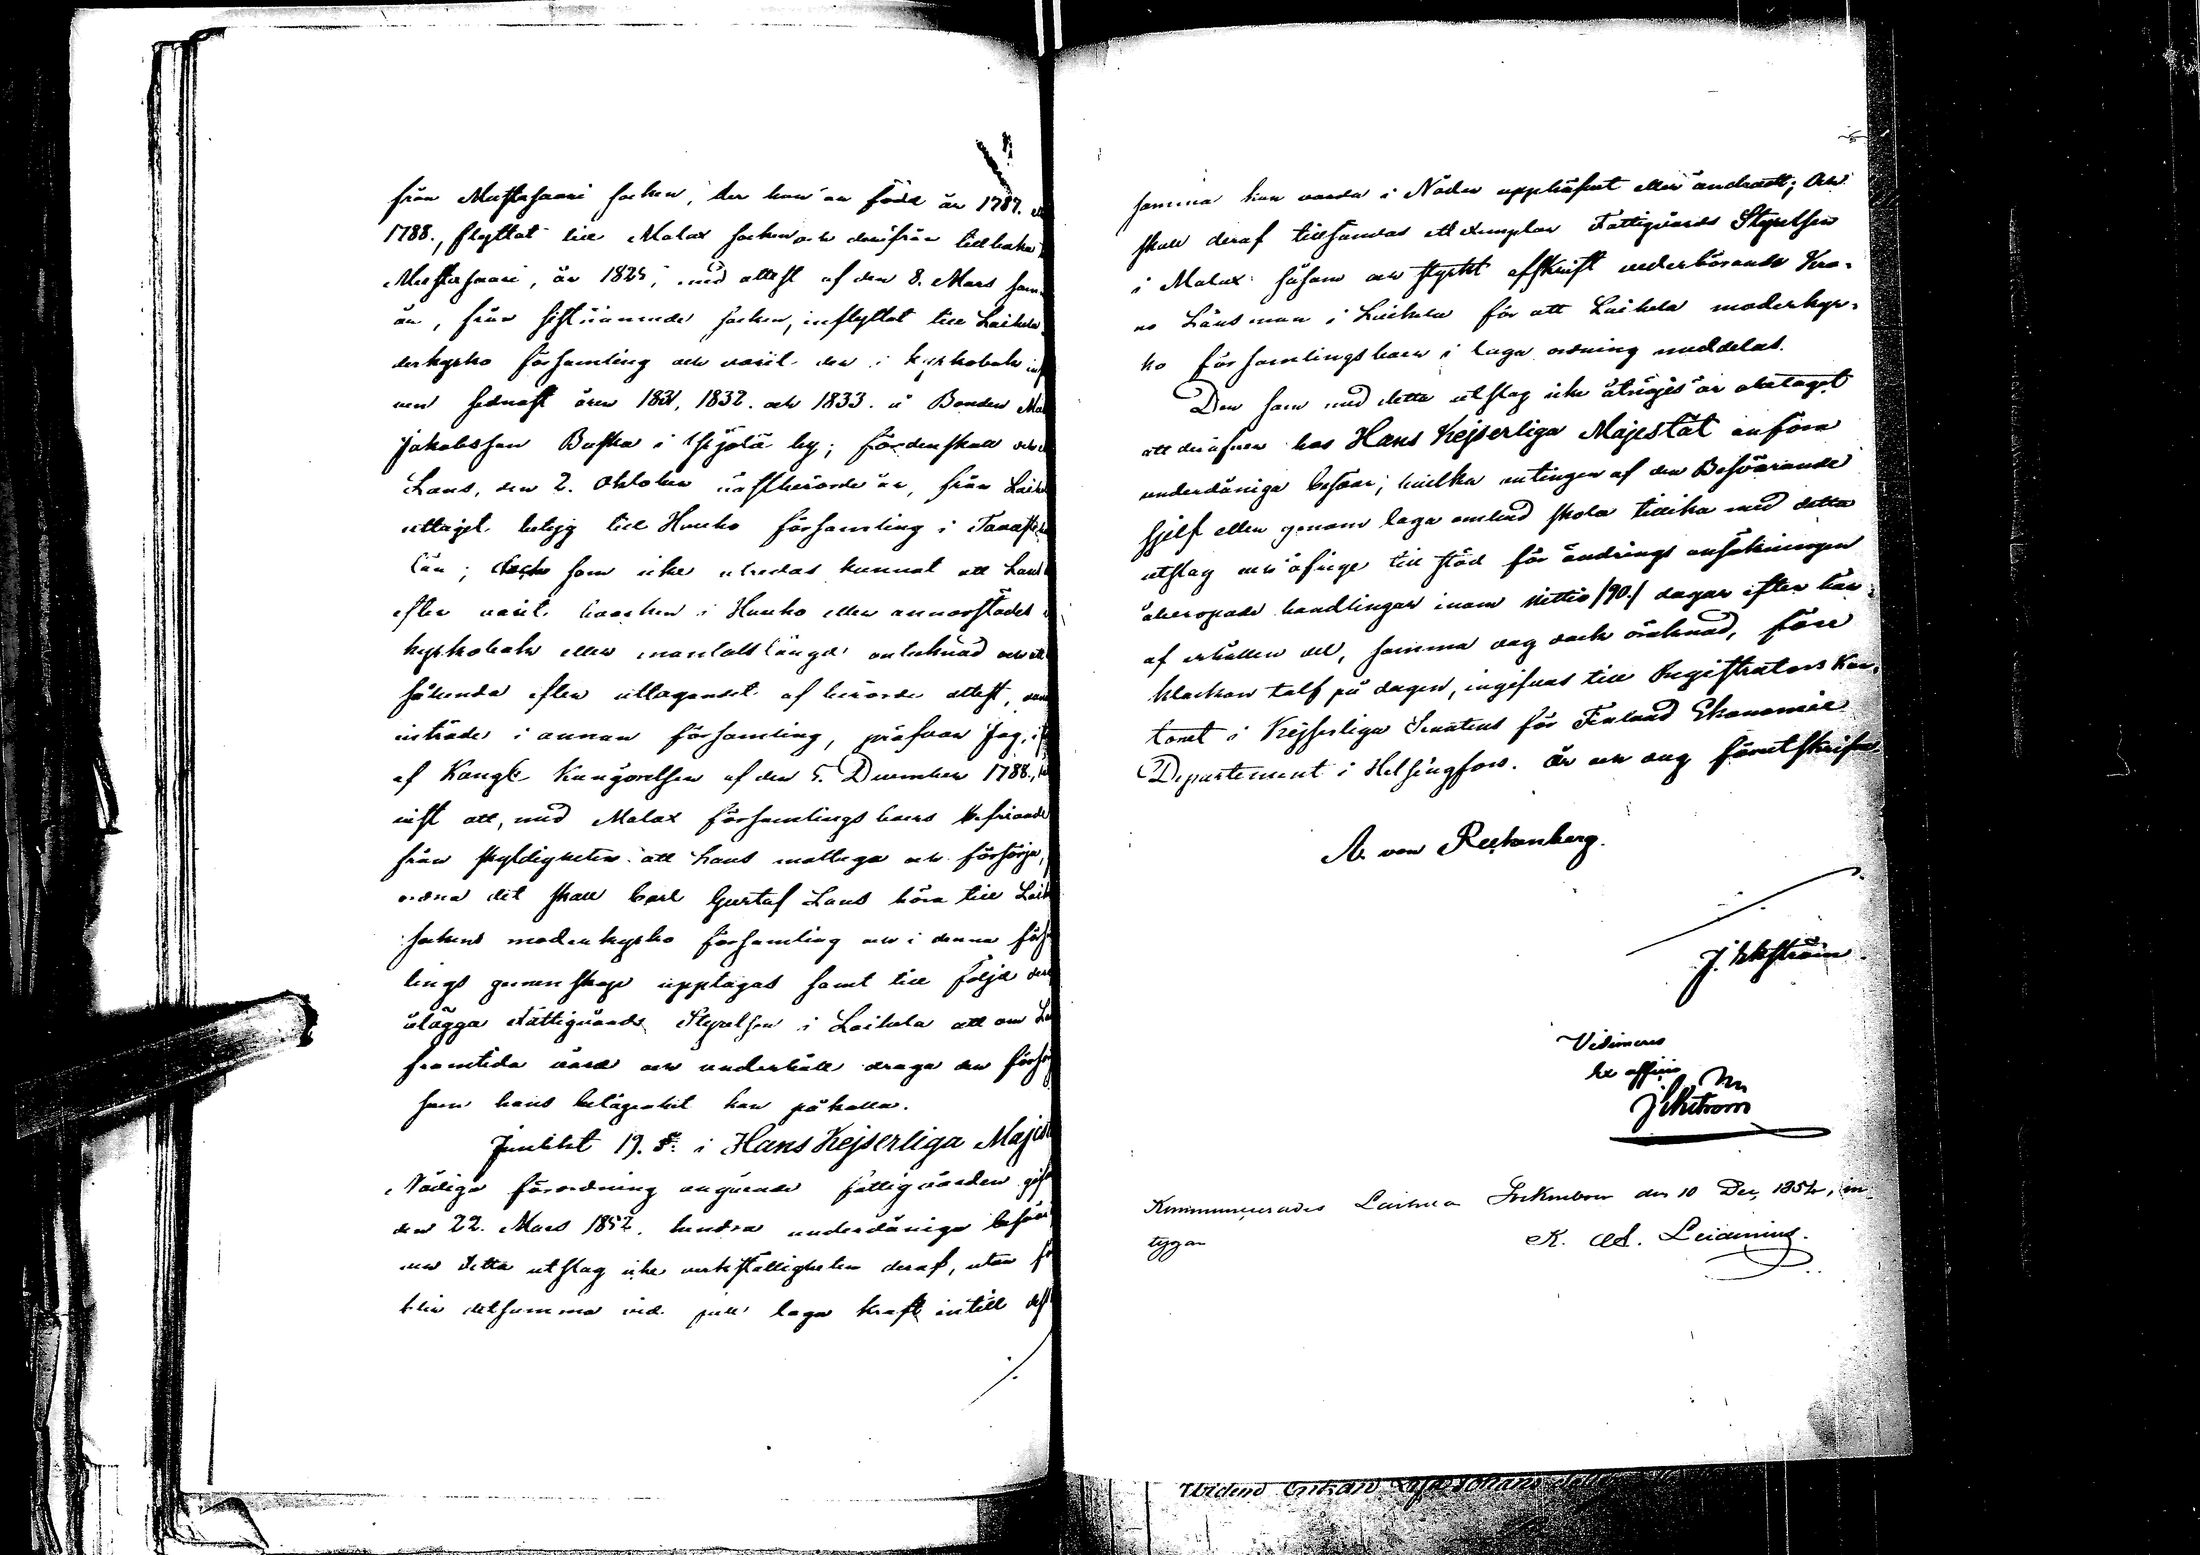 från Mustasaari socken, der han är född år 1787. 
1788., flyttat till Malax socken och derifrån tillbaka
Mustasaari, år 1825, med attest af den 8. Mars sam-
år, från sistnämnde socken, inflyttat till Laihela
derkyrko församling och varit der i kyrkobok
sednast åren 1831, 1832. och 1833. å Bonden
Jakobsson Buska i by; fördenskull och
Laus, den 2. Oktober nästberörde år, från Laihela
uttagit betyg till Hauho församling i Tavaste
län; som icke utredas kunnat att Laus
efter varit hvarken i Hauho eller annorstädes
kyrkobok eller mantalslängd antecknad och
sökande efter uttagandet af berörde attest,
inträde i annan församling, pröfvar Jag,
af Kongl. Kungörelsen af den 5. December 1788.,
vist att, med Malax församlings boers befriande
från skyldigheten att Laus mottaga och försörja,
ordna det skall Carl Gustaf Laus höra till Laihela
sockens moderkyrko församling och i denna för
lings gemenskap upptagas samt till följd der
ålägga Fattigvårds Styrelsen i Laihela att om
framtida vård och underhåll draga den försorg
som hans belägenhet kan påkalla.
Jemlikt 19. §. i Hans Kejserliga Majest
Nådiga förordning angående fattigvården
den 22. Mars 1852. hindra underdåniga besvär
detta utslag icke verkställigheten deraf, utan
blir detsamma vid full laga kraft intill
samma kan varda i Nåder upphäfvet eller ändradt; Och
skall deraf tillsändas ett exemplar Fattigvårds Styrelsen
i Malax såsom och styrkt afskrift vederbörande Kro-
no Länsman i Laihela för att Laihela moderkyr-
ko församlingsboer i laga ordning meddelas.
Den som med detta utslag icke åtnöjes är obetaget
att deröfver hos Hans Kejserliga Majestät anföra
underdåniga besvär; hvilka antingen af den Besvärande
sjelf eller genom laga ombud skola tillika med detta
utslag och öfrige till stöd för ändrings ansökningen
åberopade handlingar inom nittio /90./ dagar efter här-
af erhållen del, samma dag dock oräknad, före
klockan tolf på dagen, ingifvas till Registrators Kon-
toret i Kejserliga Senatens för Finland Ekonomie
Departement i Helsingfors. År och dag förutskrifne.
A. von Rechenberg.
J. Ekström.
Vidimeras
Ex officio
J Ekström
Kommunicerades Laihela Sockenboer den 10 Dec. 1854, in-
tygar
K. Ad.